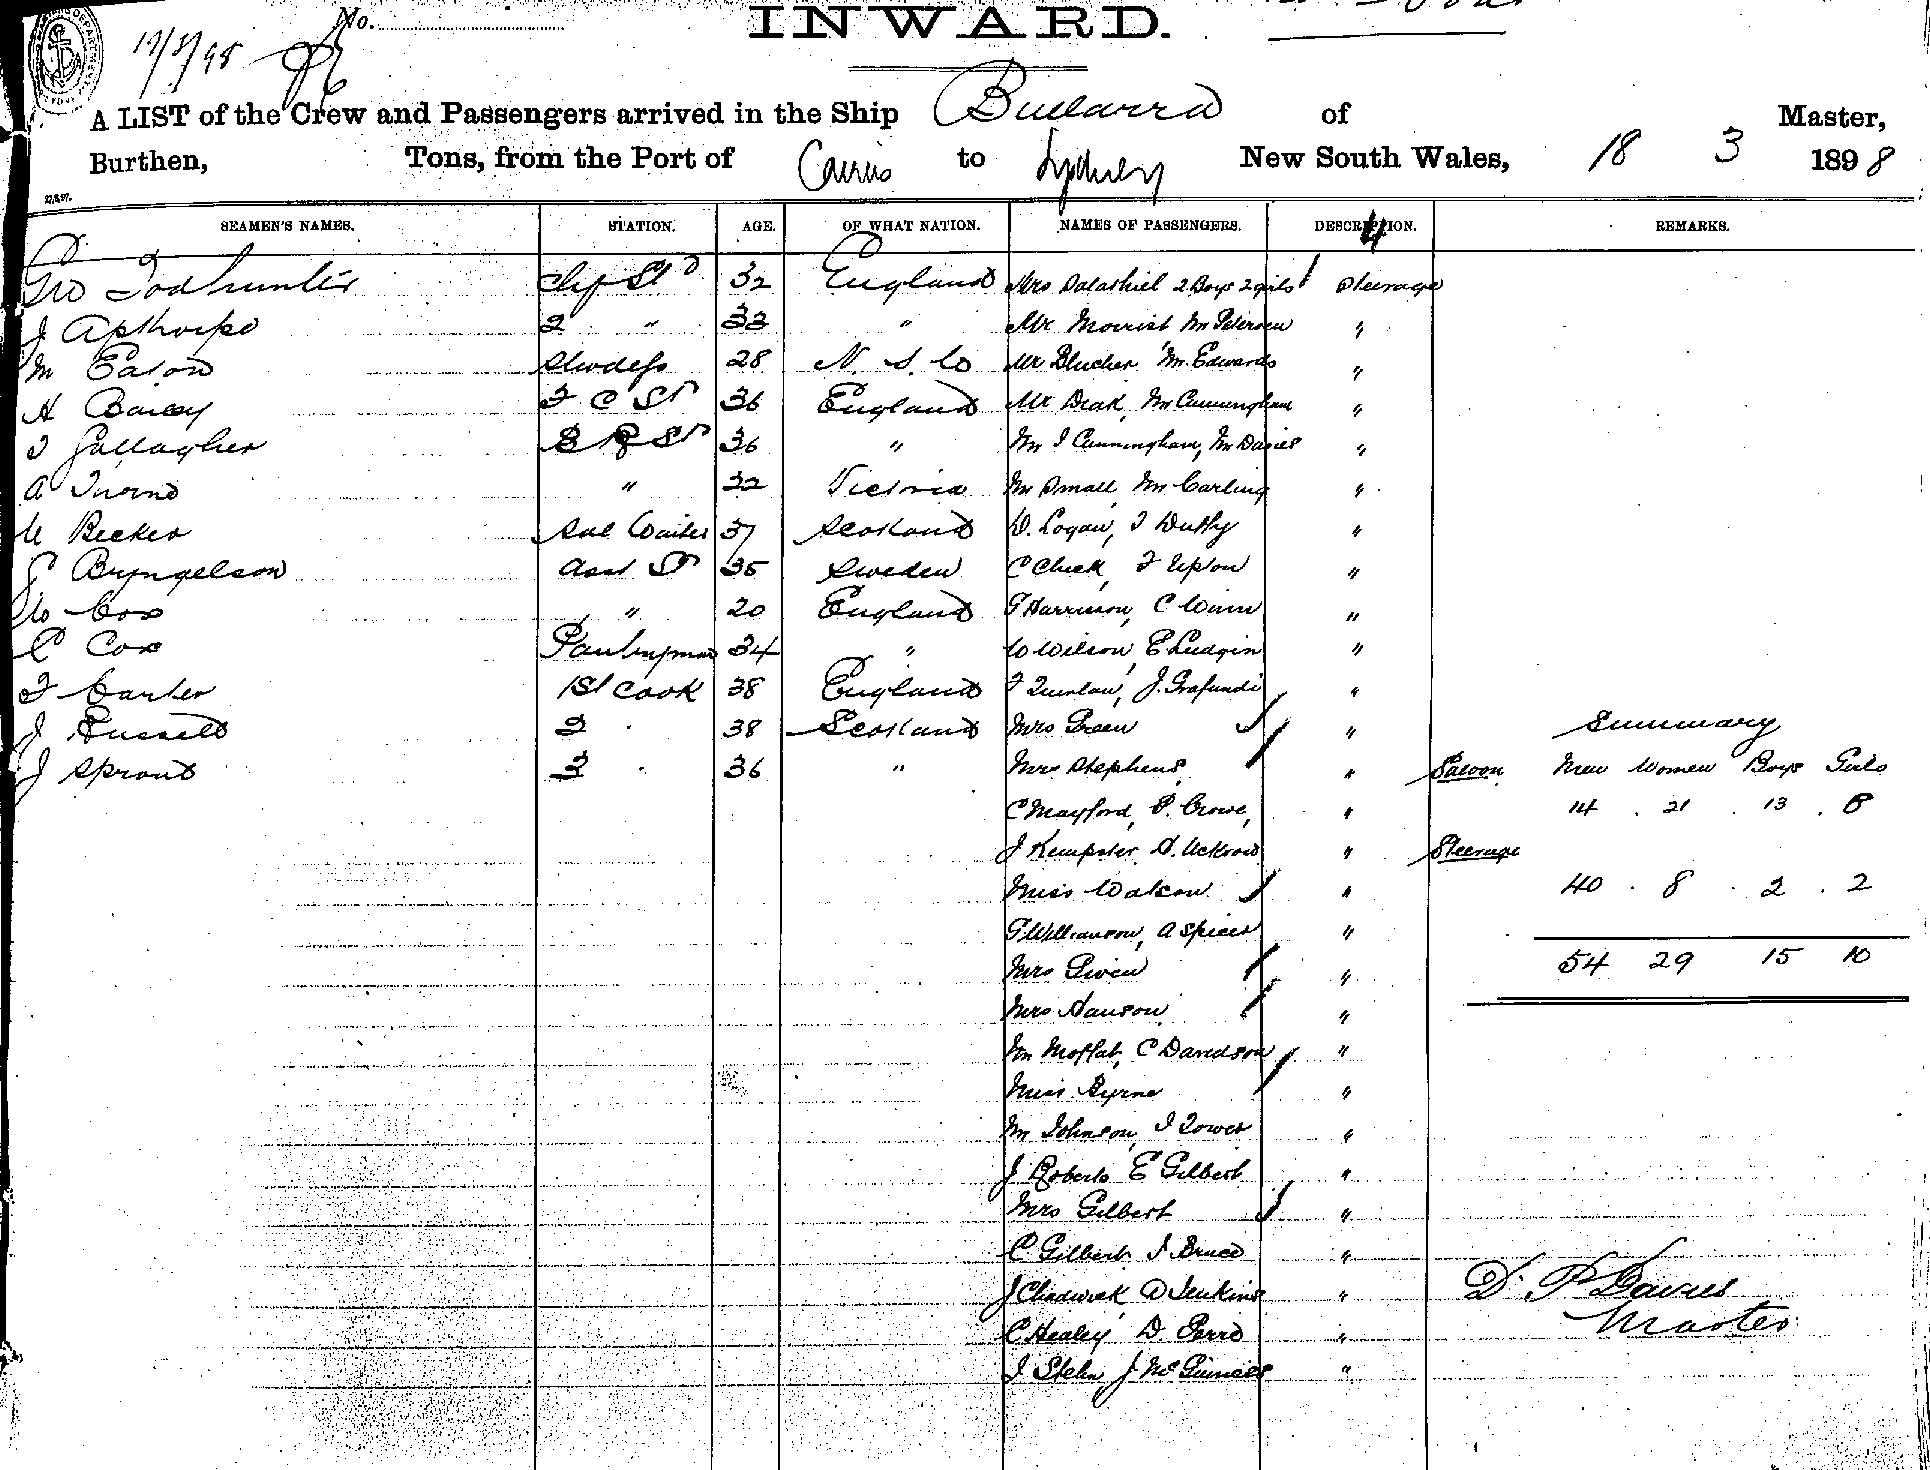 No.
INWARD.
A LIST of the Crew and Passengers arrived in the Ship Bullarra of Master,
Burthen, Tons, from the Port of Cairns to Sydney New South Wales, 18 3 1898
SEAMEN'S NAMES. STATION. AGE. OF WHAT NATION. NAMES OF PASSENGERS. DESCRIPTION. REMARKS.
Geo Todhunter Chf Std 32 England Mrs 2 Boys 2 girls Steerage
J Apthorpe 2 " 33 " Mr Morrish Mr Petersen "
M Eason Stwdess 28 N. S. W Mr Blucher Mr Edwards "
H Bailey F C St 36 England Mr Drak, Mr Cunningham "
T Gallagher St 36 " Mr J Cunningham, Mr Davies "
A " 22 Victoria Mr Small Mr Carling "
Becker Sal Waiter 37 Scotland D. Logan, J Duffy "
Bryngelson Asst St 35 Sweden C Chick, F Upton "
W Cox " 20 England T Harrison, C Winn "
C Cox Pantryman 34 " W Wilson, E Ludgin "
F Carter 1st Cook 38 England T Quinlan, J. Grafundi "
J Russell 2 " 38 Scotland Mrs Green " Summary
J Sprout 3 " 36 " Mrs Stephens, " Saloon Men Women Boys Girls
C Mayford, P. Crowe, " 14 . 21 . 13 . 8
J Kempster " Steerage
Miss Watson " 40 . 8 . 2 . 2
G Williamson, A Spicer "
Mrs Given " 54 29 15 10
Mrs Hanson "
Mr Moffat, C Davidson "
Miss Byrne "
Mr Johnson, J Tower "
J Roberts E Gilbert "
Mrs Gilbert "
C Gilbert J Bruce "
J Chadwick D Jenkins "
C Healey D Perro "
J Stehn J McGuiness "
D. P Davies
Master